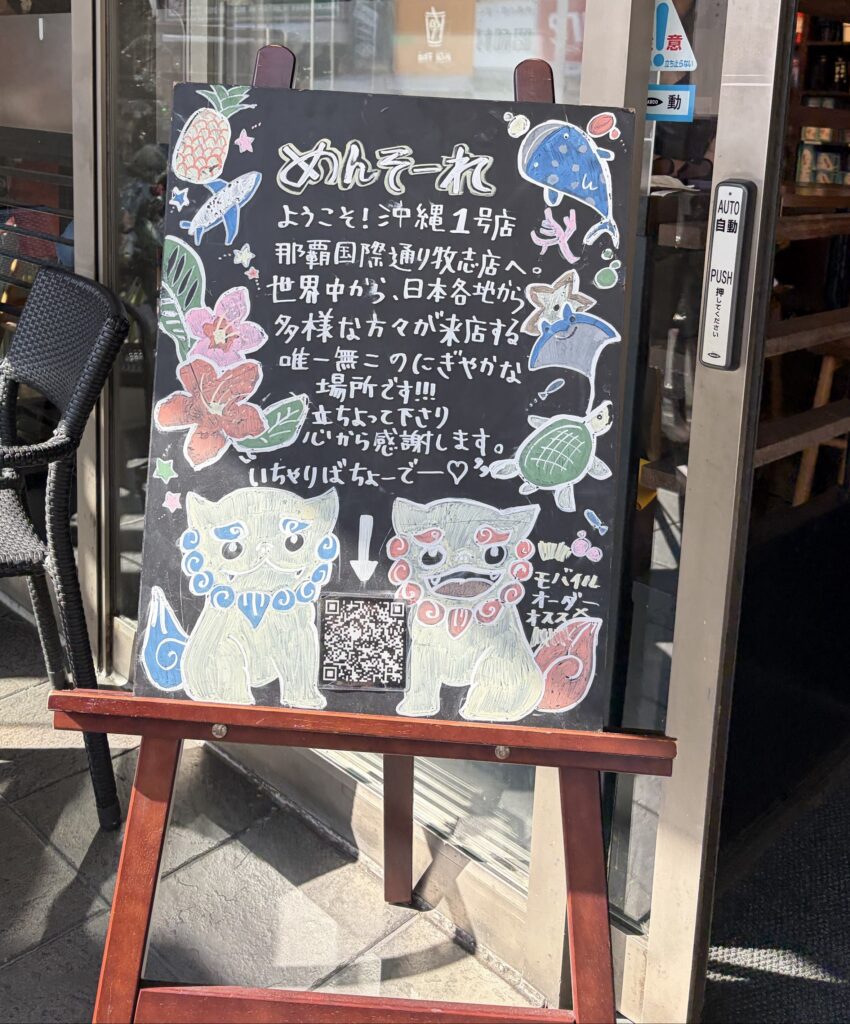 めんそーれ
ようこそ！沖縄１号店
那覇国際通り牧志店へ。
世界中から、日本各地から
多様な方々が来店する
唯一無二のにぎやかな
場所です!!!
立ちよって下さり
心から感謝します。
"いちゃりばちょーでー♡"
モバイル
オーダー
オススメ
意
立ち止らない
動
AUTO
自動
PUSH
押してください